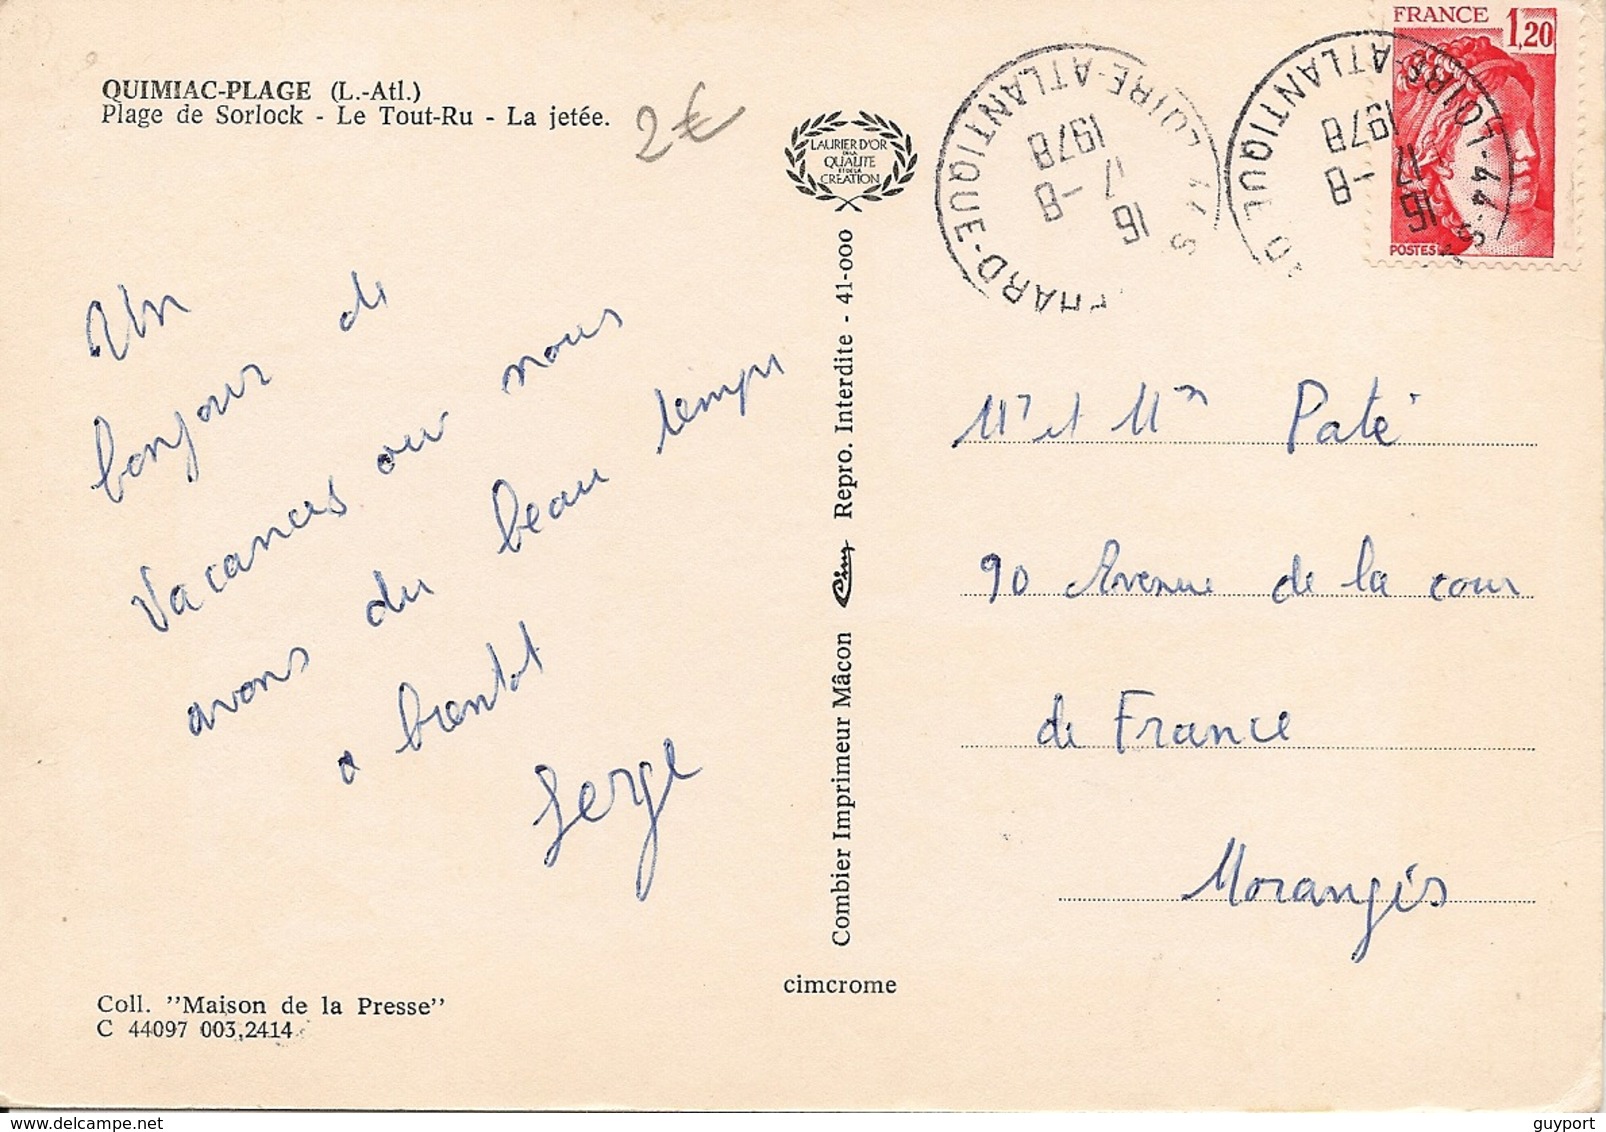 QUIMIAC-PLAGE (L.-Atl.)
Plage de Sorlock - Le Tout-Ru - La jetée.
2€
LAURIER D'OR
DE LA
QUALITE
ET DE LA
CREATION
FRANCE 1,20
POSTES
LOIRE-ATLANTIQUE
16
17-8
1978
44-LOIRE-ATLANTIQUE
16
17-8
1978
Un
bonjour de
Vacances ou nous
avons du beau temps
a bientot
Serge
Combier Imprimeur Mâcon Cim Repro. Interdite - 41-000
Mr et Mm Paté
90 Avenue de la cour
de France
Morangis
cimcrome
Coll. "Maison de la Presse"
C 44097 003,2414
guyport